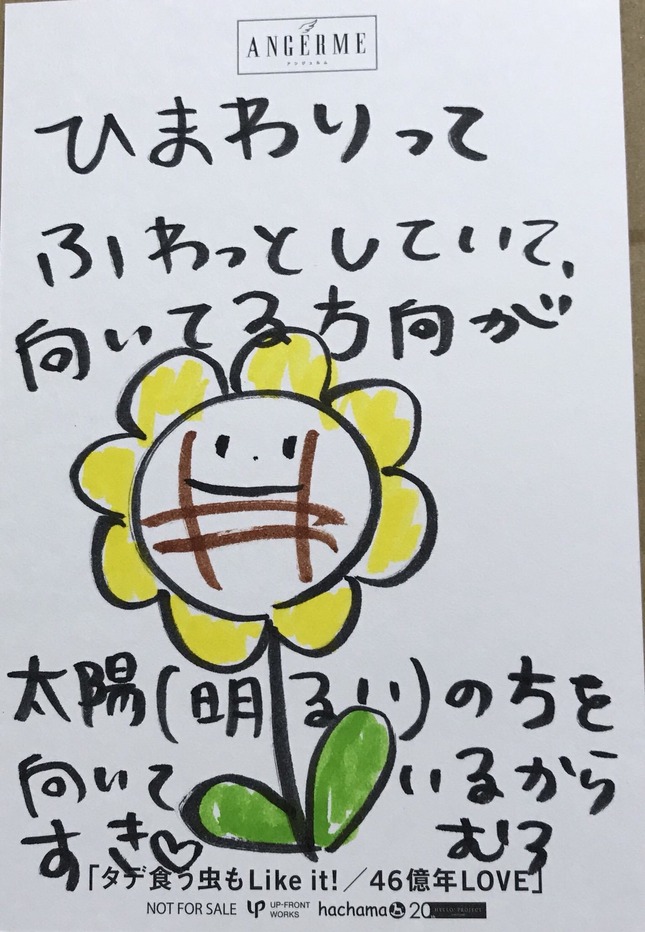 ANGERME
アンジュルム
ひまわりって
ふわっとしていて、
向いてる方向が
太陽(明るい)の方を
向いているから
すき♡ むろ
「タデ食う虫もLike it!／46億年LOVE」
NOT FOR SALE UP-FRONT WORKS hachama 20 HELLO! PROJECT